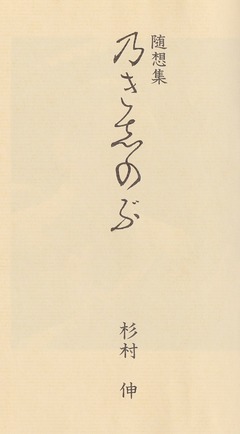 随想集
乃き志のぶ
杉村 伸